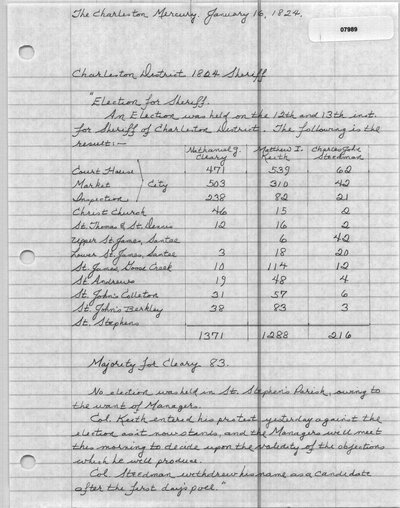 07989
The Charleston Mercury, January 16, 1824.
Charleston District 1824 Sheriff
"Election for Sheriff.
An Election was held on the 12th and 13th inst.
for Sheriff of Charleston District. The following is the
result:—
Nathanial G. Cleary Matthew I. Keith Charles John Steedman
Court House 471 539 62
Market City 503 310 42
Inspection 238 82 21
Christ Church 46 15 2
St. Thomas & St. Dennis 12 16 2
Upper St. James, Santee 6 42
Lower St. James, Santee 3 18 20
St. James, Goose Creek 10 114 12
St. Andrews 19 48 4
St. John's Colleton 31 57 6
St. John's Berkley 38 83 3
St. Stephens
1371 1288 216
Majority for Cleary 83.
No election was held in St. Stephen's Parish, owing to
the want of Managers.
Col. Keith entered his protest yesterday against the
election as it now stands, and the Managers will meet
this morning to decide upon the validity of the objections
which he will produce.
Col. Steedman withdrew his name as a candidate
after the first day's poll."